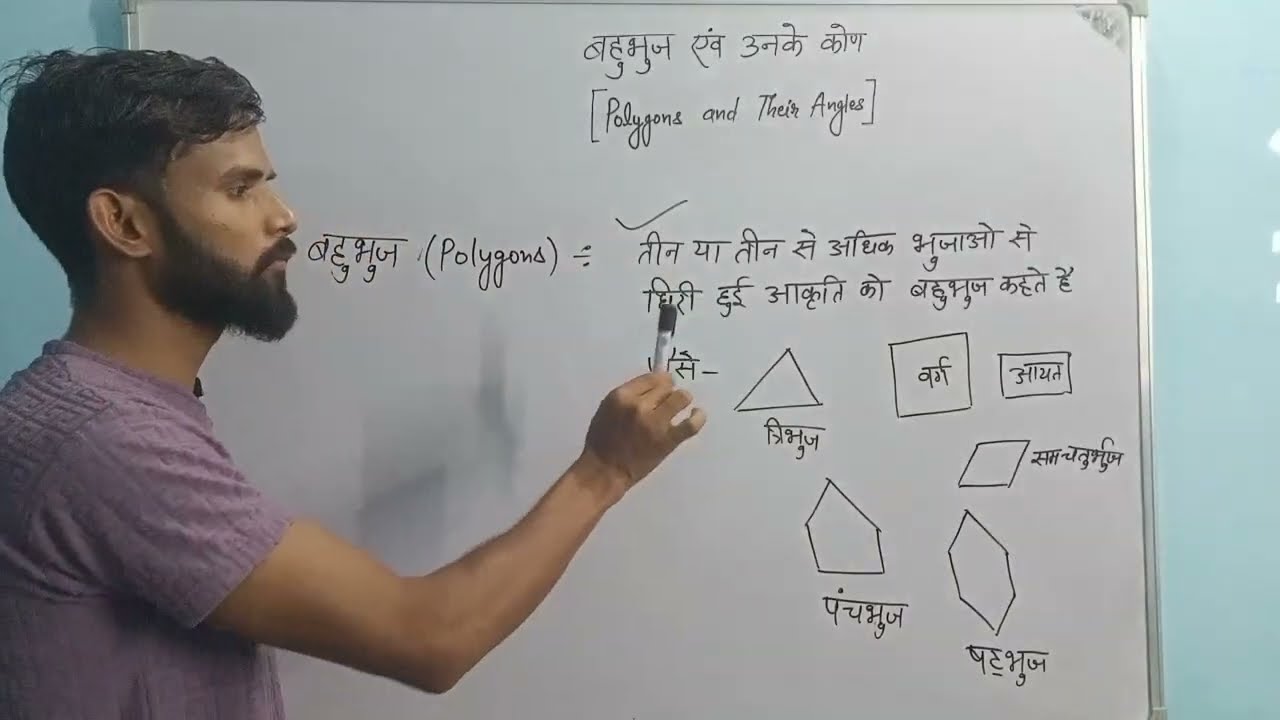 बहुभुज एंव उनके कोण
[Polygons and Their Angles]
बहुभुज (Polygons) ÷ तीन या तीन से अधिक भुजाओ से
घिरी हुई आकृति को बहुभुज कहते है
त्रिभुज
वर्ग
आयत
समचतुर्भुज
पंचभुज
षट्भुज